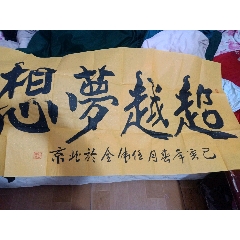 超越夢想
己亥年春月任伟全於北京